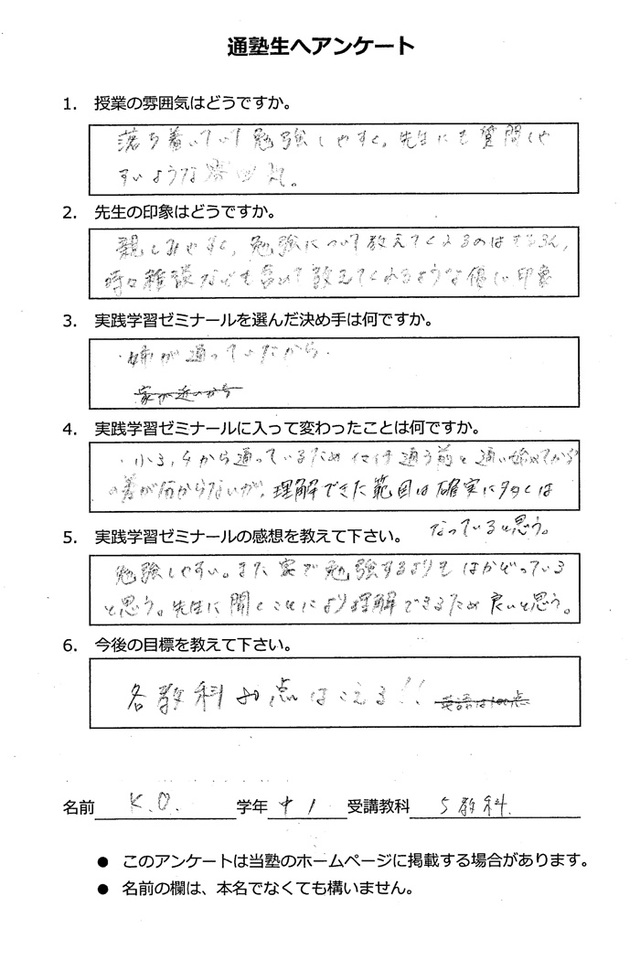 通塾生へアンケート
1. 授業の雰囲気はどうですか。
落ち着いていて勉強しやすく。先生にも質問しや
すいような雰囲気。
2. 先生の印象はどうですか。
親しみやすく、勉強について教えてくれるのはもちろん、
時々雑談なども含めて教えてくれるような優しい印象
3. 実践学習ゼミナールを選んだ決め手は何ですか。
・姉が通っていたから。
家が近いから
4. 実践学習ゼミナールに入って変わったことは何ですか。
・小3,4から通っているため 通う前と通い始めてから
の差が分からないが、理解できた範囲は確実に多くは
なっていると思う。
5. 実践学習ゼミナールの感想を教えて下さい。
勉強しやすい。また家で勉強するよりもはかどっている
と思う。先生に聞くことにより理解できるため良いと思う。
6. 今後の目標を教えて下さい。
各教科 点はこえる!! 英語は100点
名前 K.O. 学年 中1 受講教科 5教科
● このアンケートは当塾のホームページに掲載する場合があります。
● 名前の欄は、本名でなくても構いません。